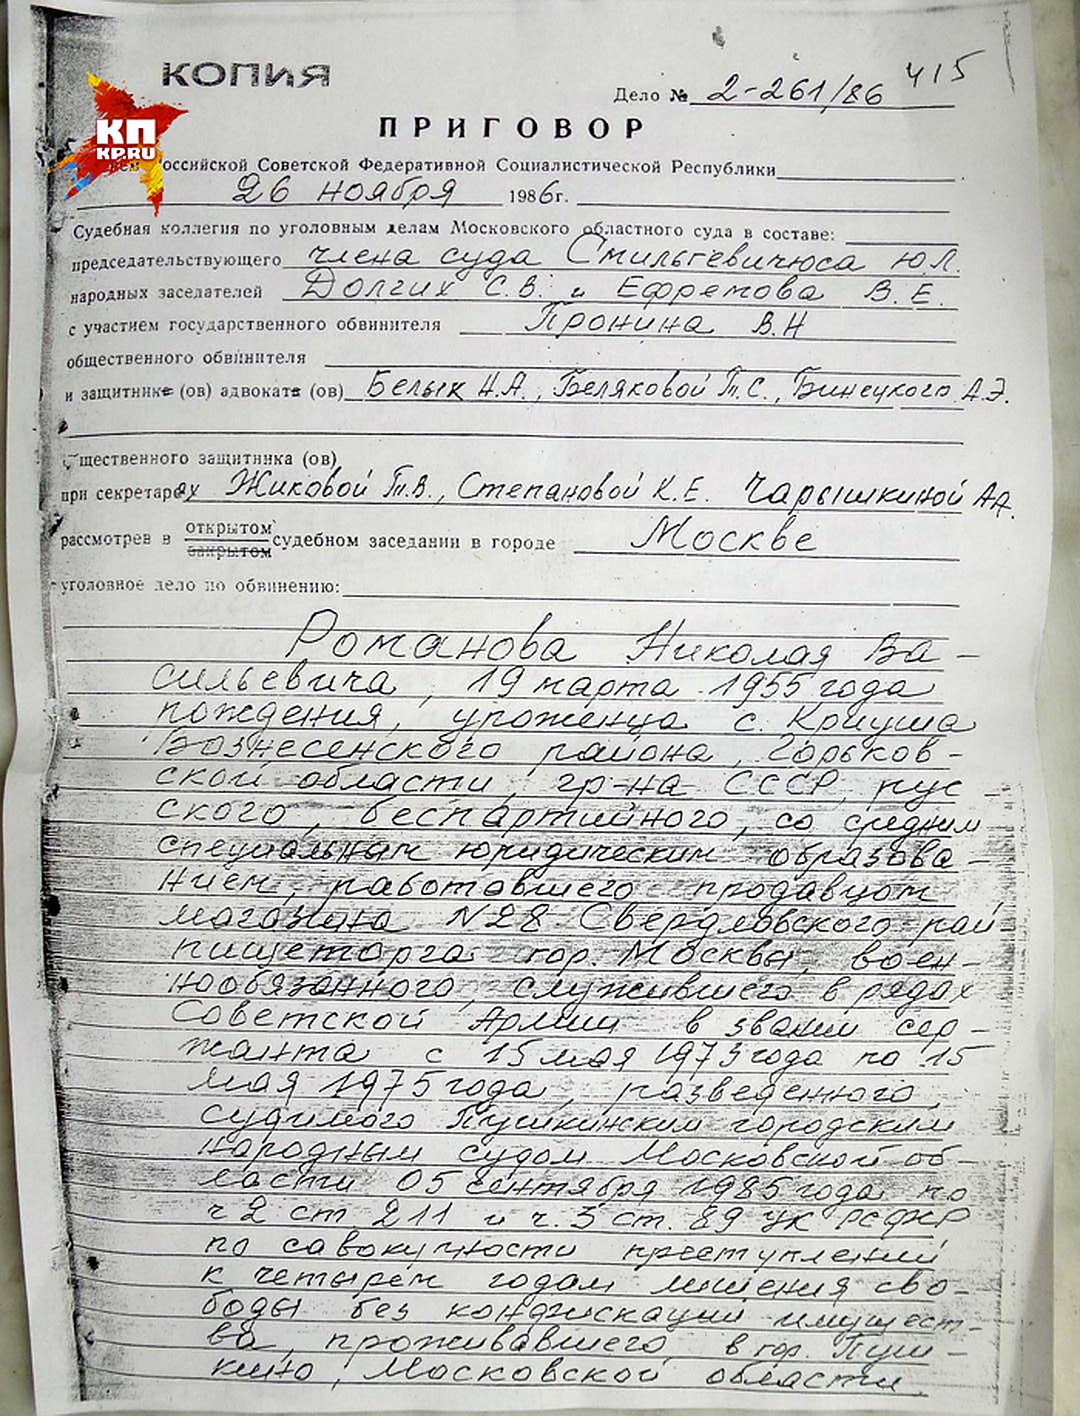 КОПИЯ
415
Дело № 2-261/86
ПРИГОВОР
КП
KP.RU
Российской Советской Федеративной Социалистической Республики
26 ноября 1986г.
Судебная коллегия по уголовным делам Московского областного суда в составе:
председательствующего члена суда Смильгевичюса Ю.Л.
народных заседателей Долгих С.В. и Ефремова В.Е.
с участием государственного обвинителя Пронина В.Н
общественного обвинителя
и защитник (ов) адвокат (ов) Белых Н.А., Беляковой Т.С., Бинецкого А.Э.
общественного защитника (ов)
при секретарях Жиковой Т.В., Степановой К.Е. Чарышкиной А.А.
рассмотрев в открытом закрытом судебном заседании в городе Москве
уголовное дело по обвинению:
Романова Николая Ва-
сильевича, 19 марта 1955 года
рождения, уроженца с. Криуша
Вознесенского района, Горьков-
ской области, гр-на СССР, рус-
ского, беспартийного, со средним
специальным юридическим образова-
нием, работавшего продавцом
магазина N28 Свердловского рай
пищеторга гор. Москвы, воен-
нообязанного, служившего в рядах
Советской Армии в звании сер-
жанта с 15 мая 1973 года по 15
мая 1975 года, разведенного,
судимого Пушкинским городским
народным судом Московской об-
ласти 05 сентября 1985 года по
ч 2 ст 211 и ч. 3 ст. 89 УК РСФСР
по савокупности преступлений
к четырем годам лишения сво-
боды без конфискации имущест-
ва, проживавшего в гор. Пуш-
кино, Московской области